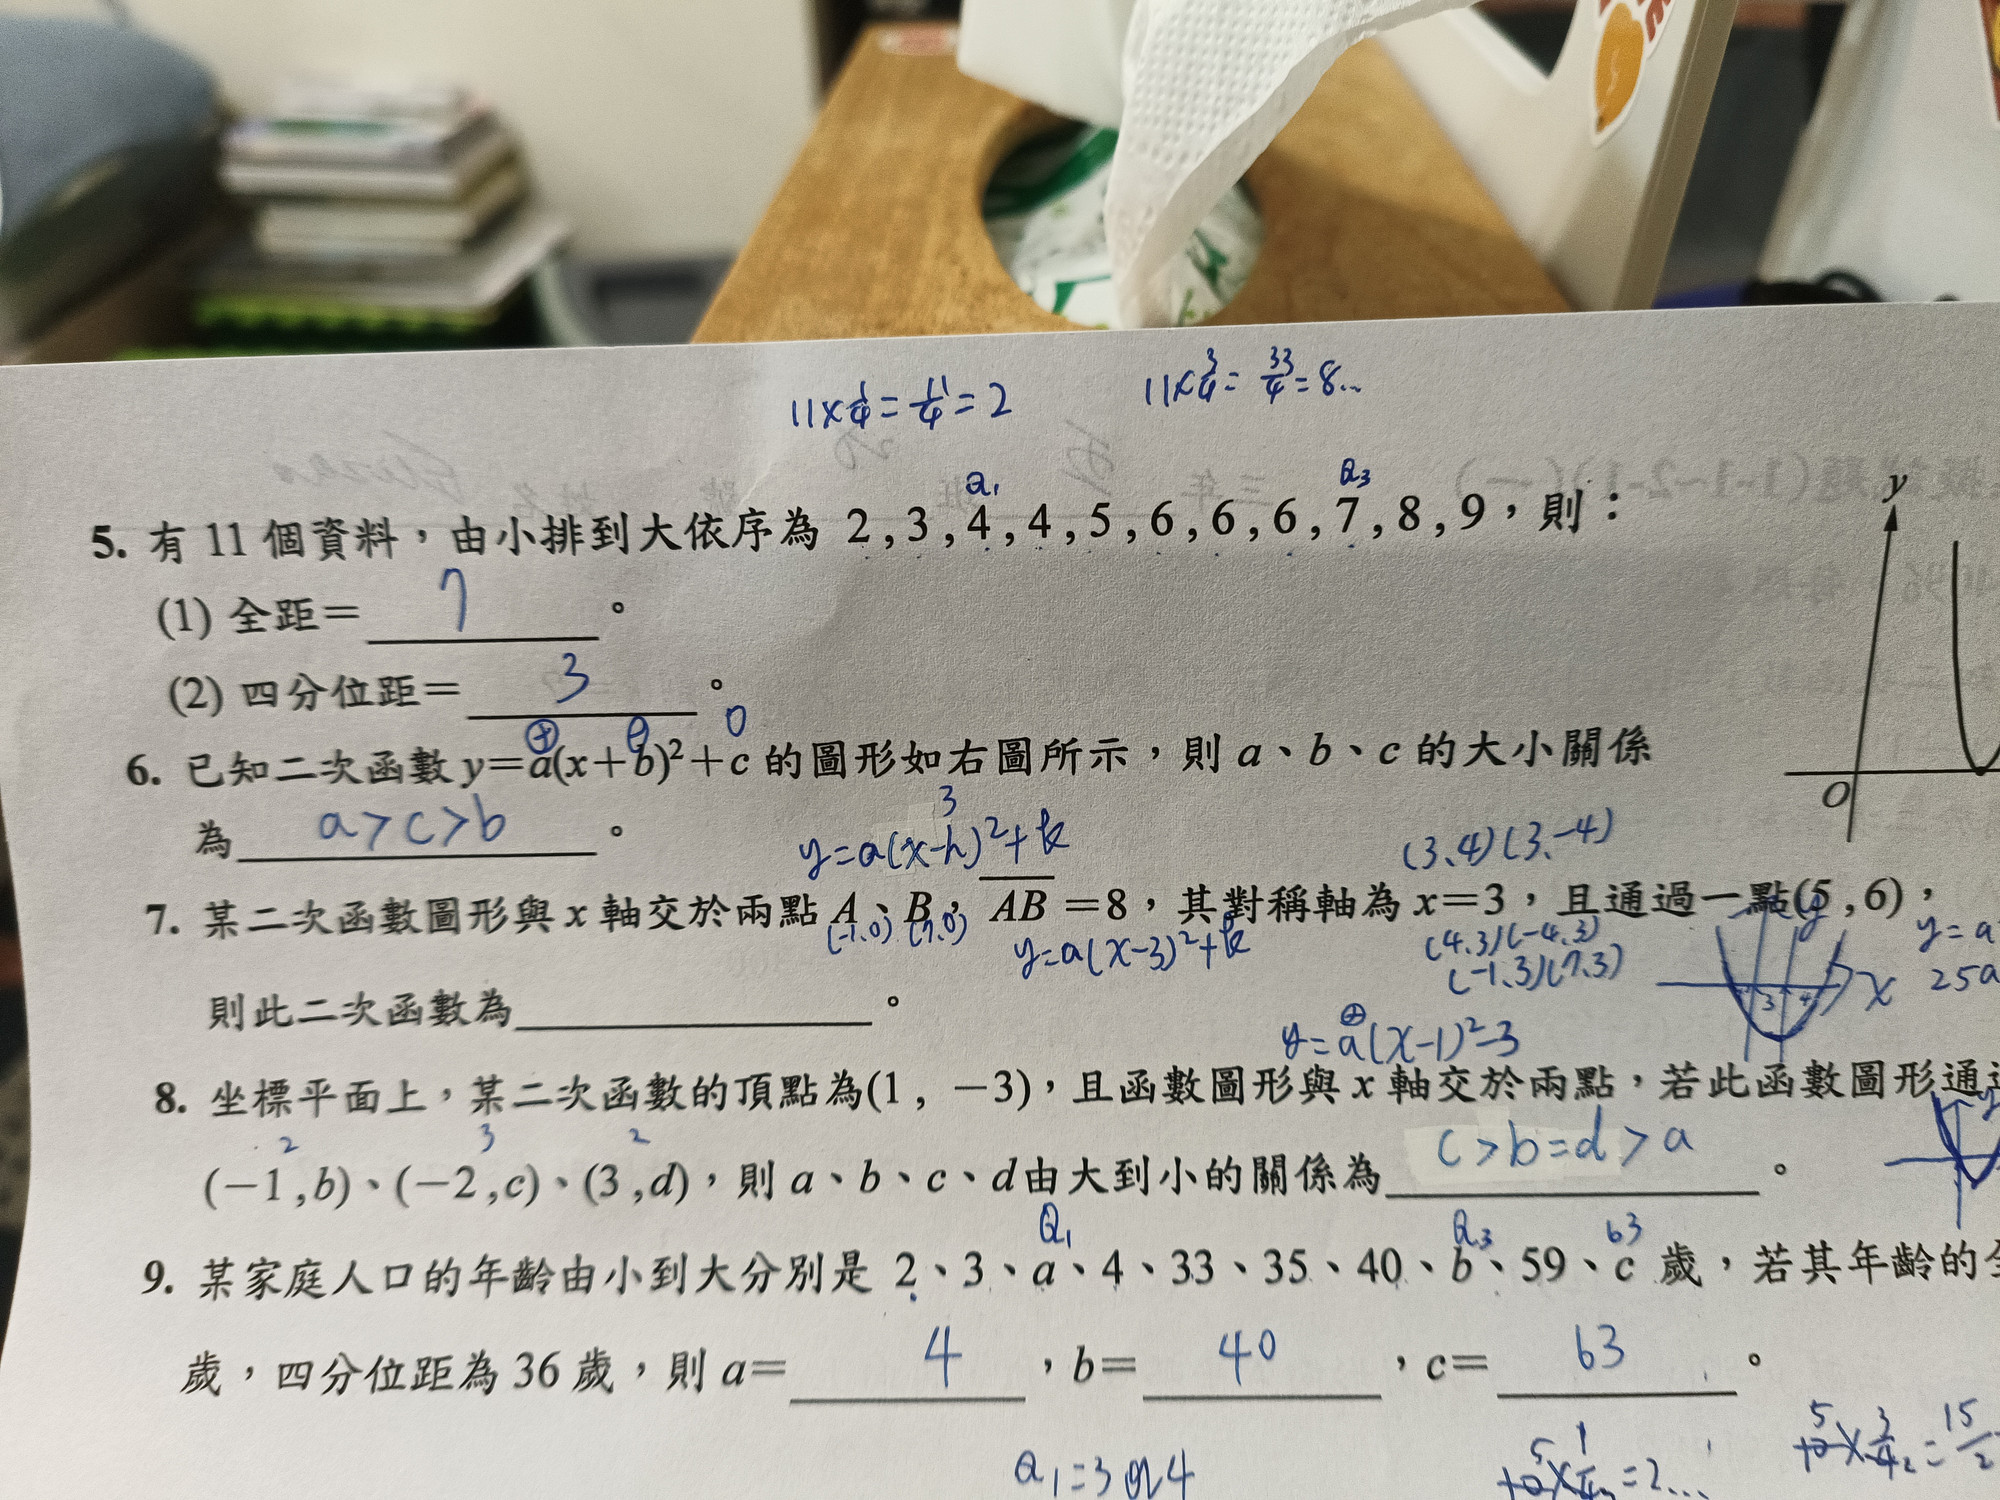 11×1/4=11/4=2 11×3/4=33/4=8...
Q₁ Q₃
5. 有 11 個資料，由小排到大依序為 2 , 3 , 4 , 4 , 5 , 6 , 6 , 6 , 7 , 8 , 9，則：
y
(1) 全距＝ 7 。
(2) 四分位距＝ 3 。
⊕ ⊖ 0
6. 已知二次函數 y＝a(x＋b)²＋c 的圖形如右圖所示，則 a、b、c 的大小關係
O
為 a>c>b 。
3
y=a(x-h)²+k (3、4)(3、-4)
7. 某二次函數圖形與 x 軸交於兩點 A、B，AB＝8，其對稱軸為 x＝3，且通過一點(5 , 6)，
(-1、0) (7、0) y=a(x-3)²+k (4、3)(-4、3) y y=a
(-1、3)(7、3) 3 4 x 25a
則此二次函數為 。
⊕
y=a(x-1)²-3
8. 坐標平面上，某二次函數的頂點為(1 , －3)，且函數圖形與 x 軸交於兩點，若此函數圖形通
2 3 2 y
(－1 , b)、(－2 , c)、(3 , d)，則 a、b、c、d由大到小的關係為 c>b=d>a 。
Q₁ Q₃ 63
9. 某家庭人口的年齡由小到大分別是 2、3、a、4、33、35、40、b、59、c 歲，若其年齡的全
歲，四分位距為 36 歲，則 a＝ 4 ，b＝ 40 ，c＝ 63 。
Q₁=3 or 4 =2... =15/2